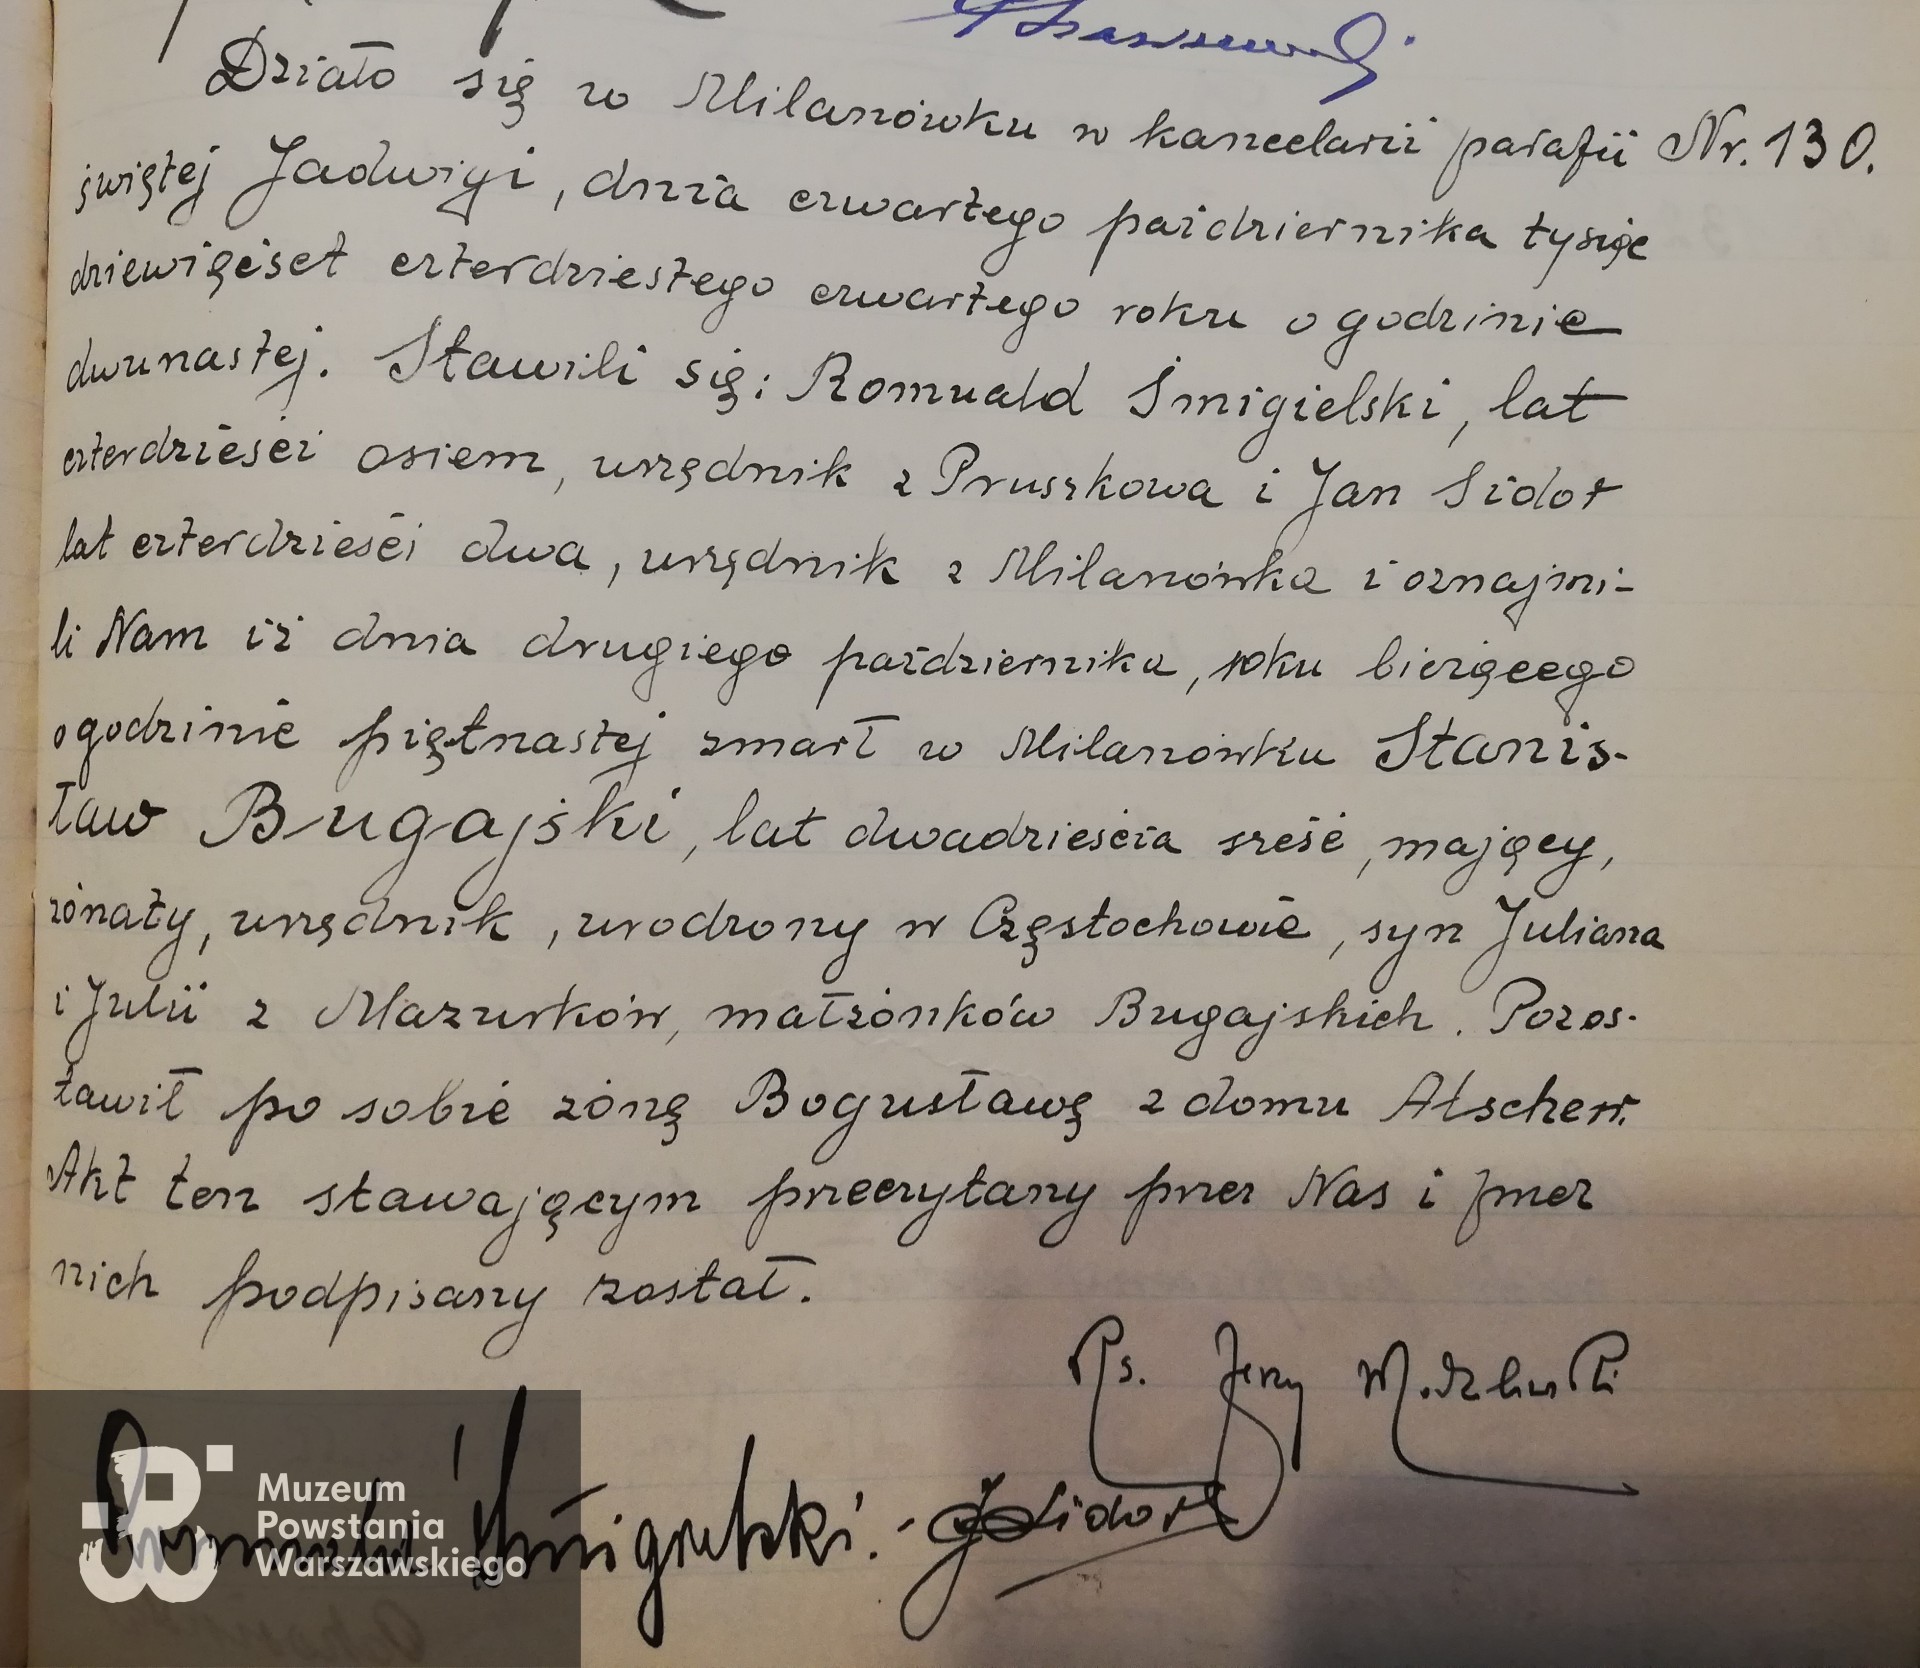 Działo się w Milanówku w kancelarii parafii Nr. 130.
świętej Jadwigi, dnia czwartego października tysiąc
dziewięćset czterdziestego czwartego roku o godzinie
dwunastej. Stawili się: Romuald Śmigielski, lat
czterdzieści osiem, urzędnik z Pruszkowa i Jan Sidor
lat czterdzieści dwa, urzędnik z Milanówka i oznajmi-
li Nam iż dnia drugiego października, roku bieżącego
o godzinie piętnastej zmarł w Milanówku Stanis-
ław Bugajski, lat dwadzieścia sześć, mający,
żonaty, urzędnik, urodzony w Częstochowie, syn Juliana
i Julii z Mazurków, małżonków Bugajskich. Pozos-
tawił po sobie żonę Bogusławę z domu Alscher.
Akt ten stawającym przeczytany przez Nas i przez
nich podpisany został.
Ks. Jerzy Modzelewski
Romuald Śmigielski. J Sidor
Muzeum
Powstania
Warszawskiego